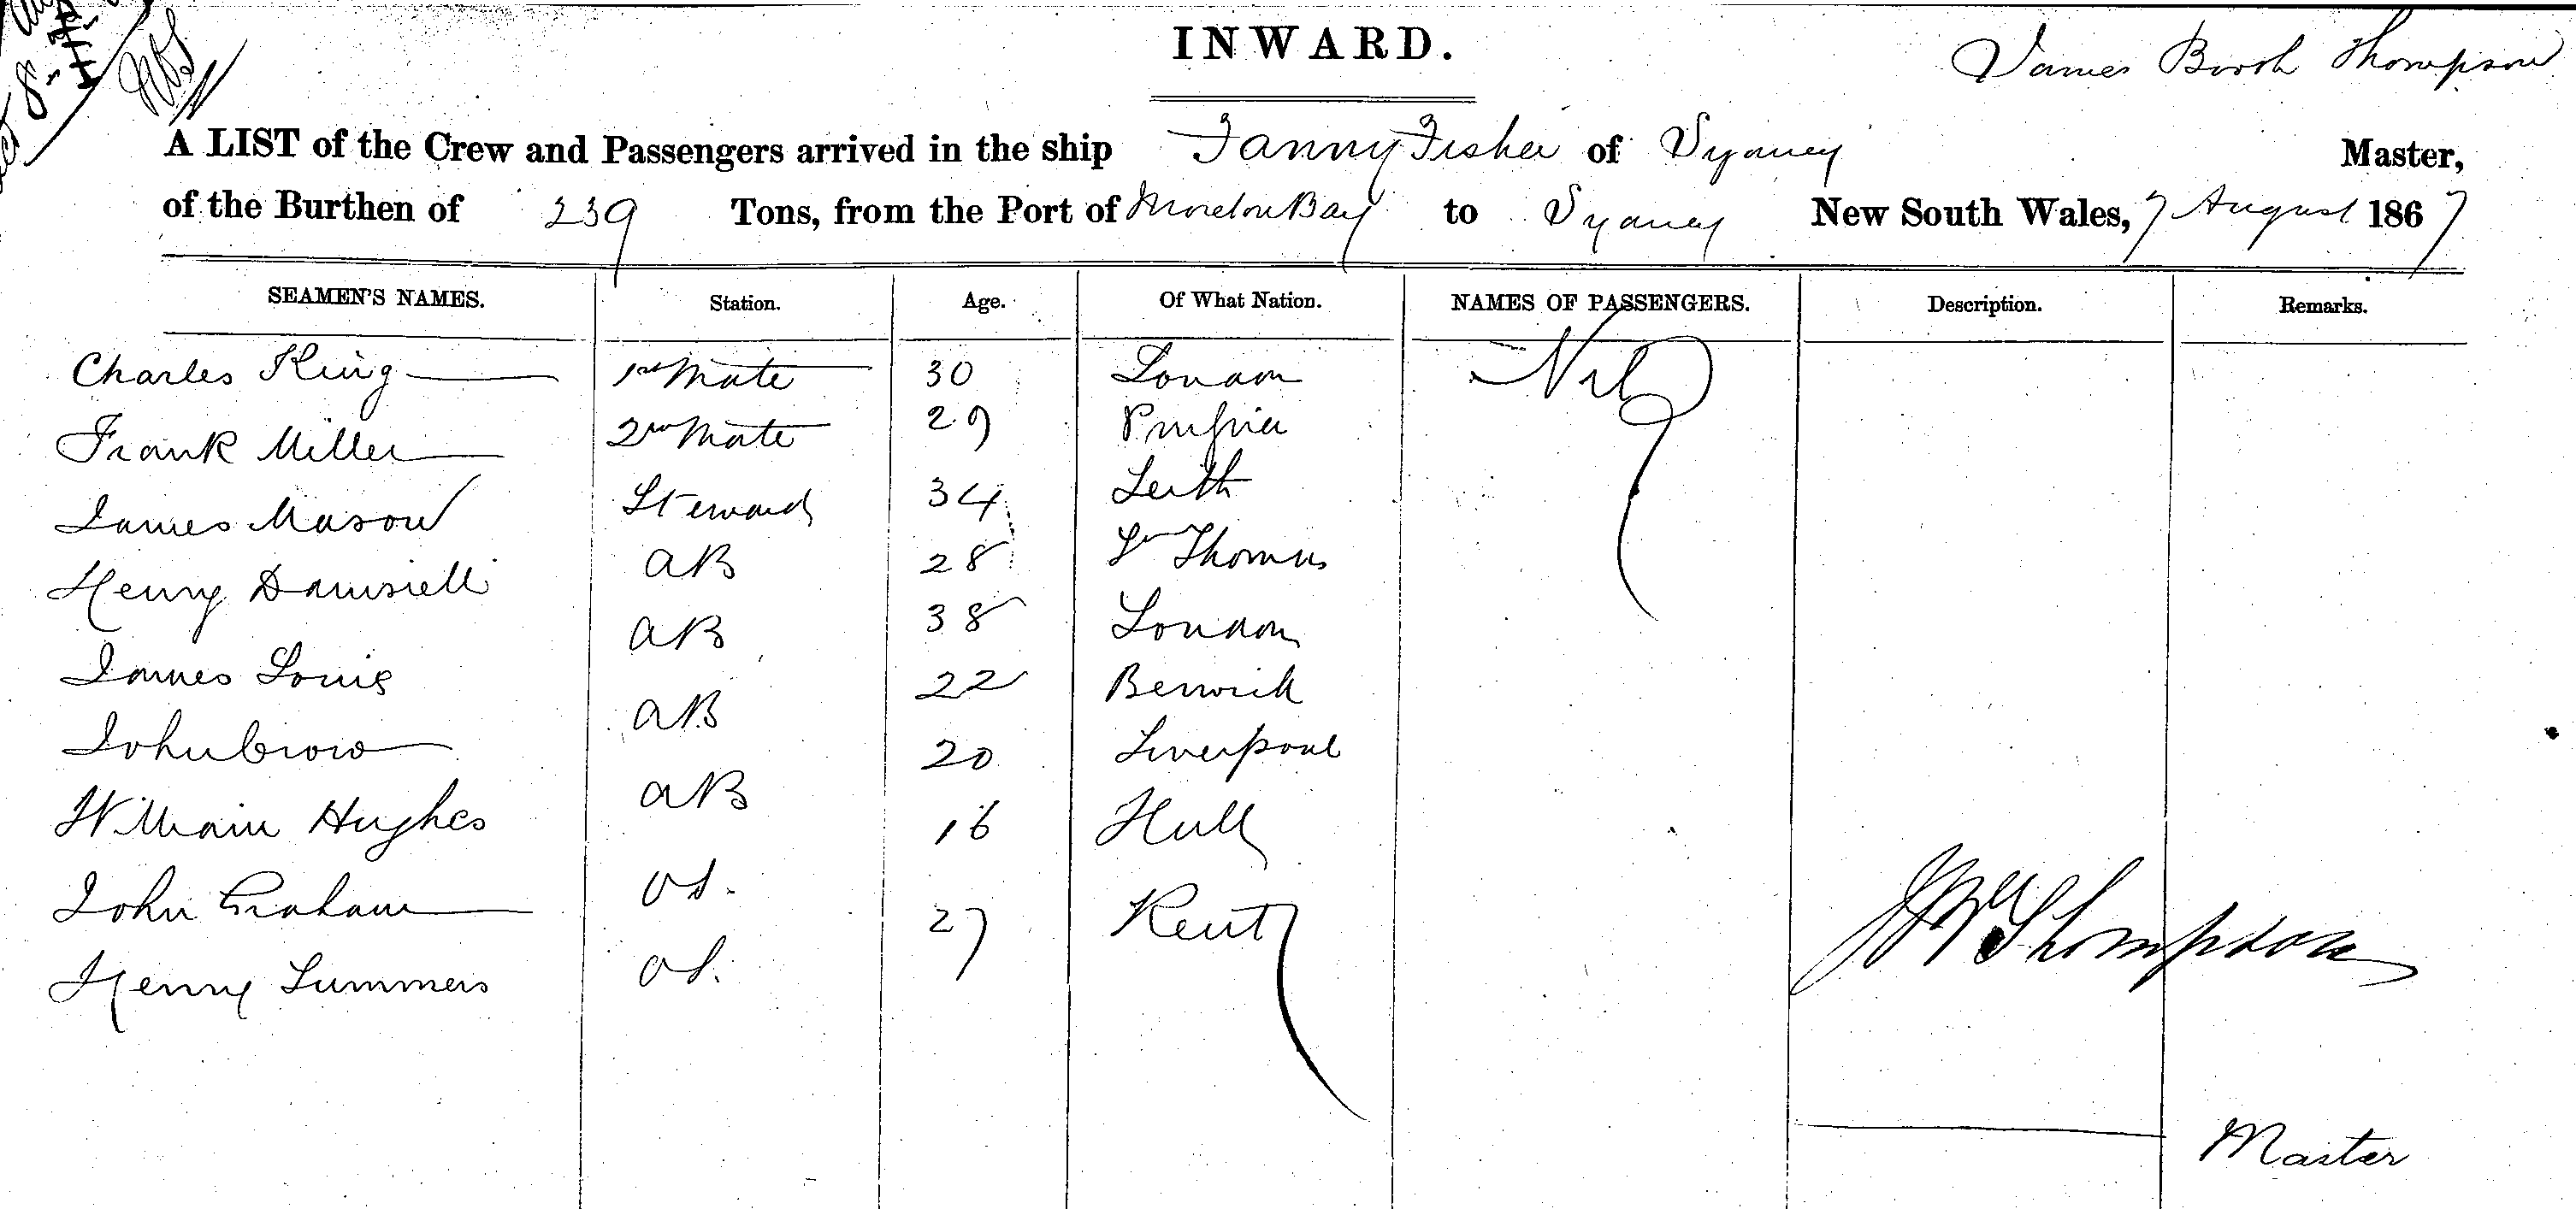 INWARD.
James Booth Thompson
A LIST of the Crew and Passengers arrived in the ship Fanny Fisher of Sydney Master,
of the Burthen of 239 Tons, from the Port of Moreton Bay to Sydney New South Wales, 7 August 1867
SEAMEN'S NAMES. Station. Age. Of What Nation. NAMES OF PASSENGERS. Description. Remarks.
Charles King 1st Mate 30 London Nil
Frank Miller 2nd Mate 29 Prussia
James Mason Steward 34 Leith
Henry AB 28 St Thomas
James Louis AB 38 London
John Crow AB 22 Berwick
William Hughes AB 20 Liverpool
John Graham OS. 16 Hull
Henry Summers OS. 27 Kent
Thompson
Master